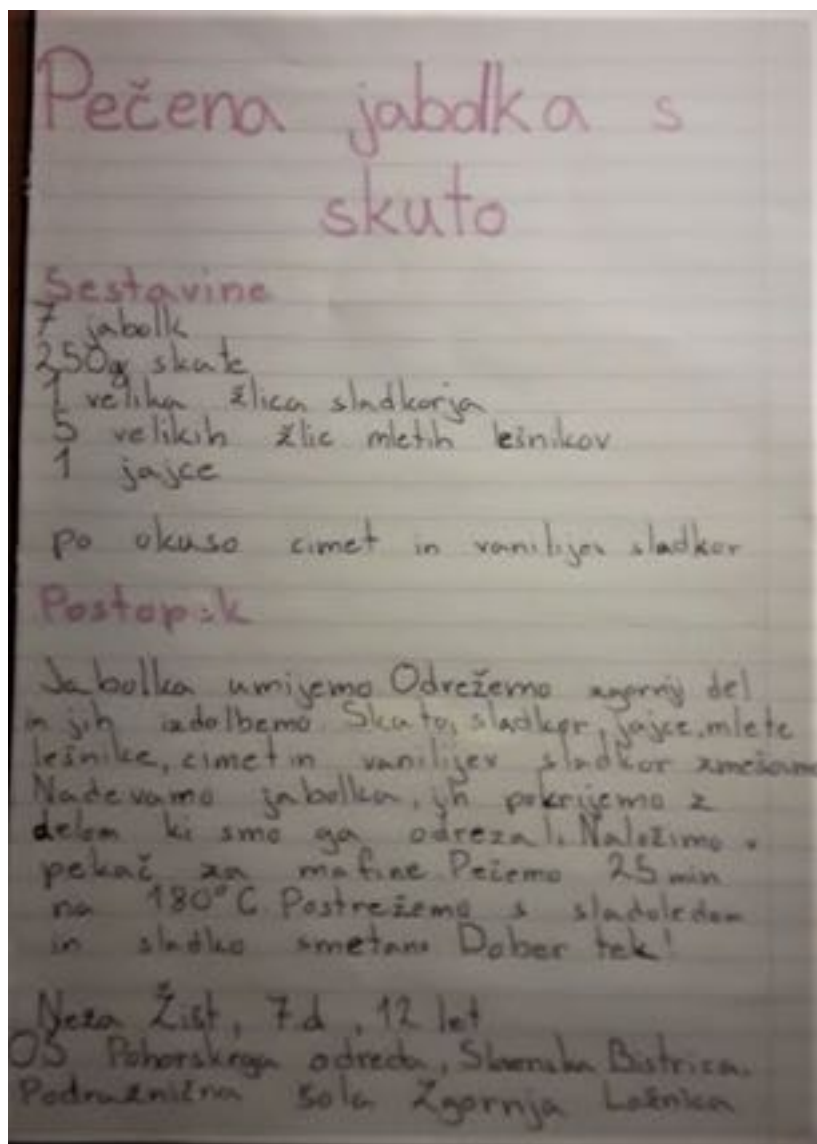 Pečena jabolka s
skuto
Sestavine
7 jabolk
250g skute
1 velika žlica sladkorja
5 velikih žlic mletih lešnikov
1 jajce
po okuso cimet in vanilijev sladkor
Postopek
Jabolka umijemo Odrežemo zgornji del
in jih izdolbemo. Skuto, sladkor, jajce, mlete
lešnike, cimet in vanilijev sladkor zmešamo
Nadevamo jabolka, jih pokrijemo z
delom ki smo ga odrezali. Naložimo v
pekač za mafine Pečemo 25 min
na 180°C. Postrežemo s sladoledom
in sladko smetano Dober tek!
Neža Žist, 7.d, 12 let
OŠ Pohorskega odreda, Slovenska Bistrica.
Podružnična šola Zgornja Ložnica